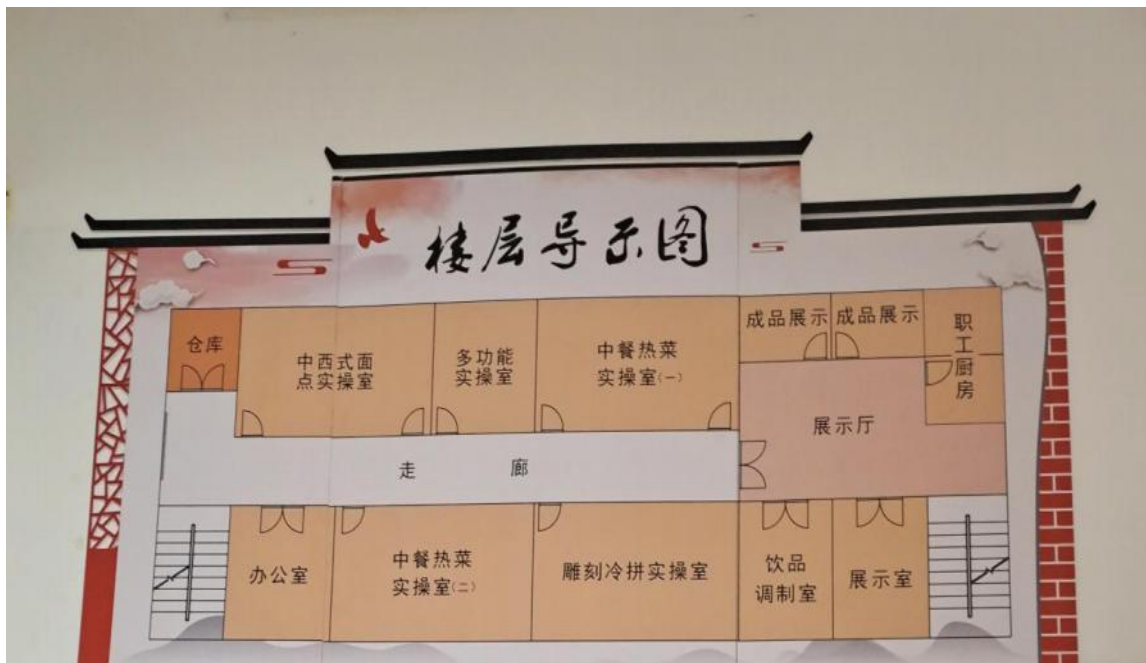 楼层导示图
仓库
中西式面
点实操室
多功能
实操室
中餐热菜
实操室(一)
成品展示
成品展示
职工厨房
展示厅
走廊
办公室
中餐热菜
实操室(二)
雕刻冷拼实操室
饮品
调制室
展示室